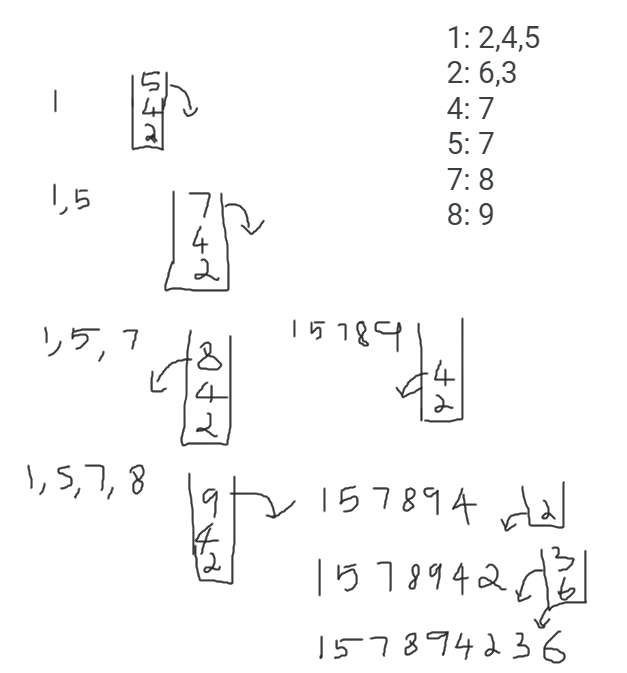 1: 2,4,5
2: 6,3
4: 7
5: 7
7: 8
8: 9
1
5
4
2
1,5
7
4
2
1,5,7
8
4
2
1,5,7,8
9
4
2
15789
4
2
157894
2
1578942
3
6
157894236